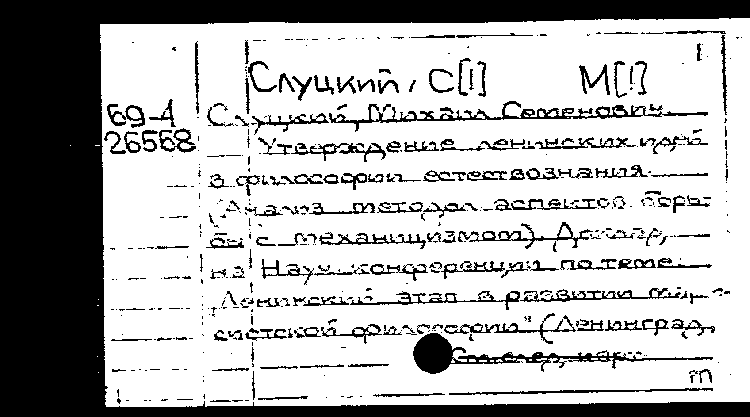 1
Слуцкий, С[!] М[!]
69-4 Слуцкий, Михаил Семенович.
26568 Утверждение ленинских идей
в философии естествознания.
(Анализ методол. аспектов борь-
бы с механицизмом). Доклад,
на Науч. конференции по теме:
"Ленинский этап в развитии марк-
систской философии" (Ленинград,
См. след. карт.
m